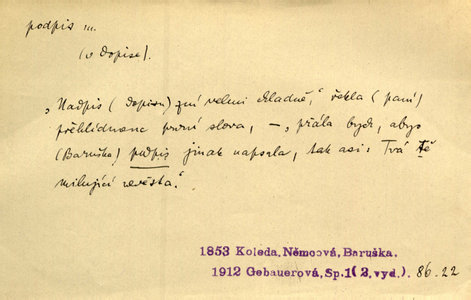 podpis ...
(v dopise).
„Nadpis (dopisu) zní velmi chladně,“ řekla (paní)
přehlédnuvši první slova, — „přála bych, abys
(Baruška) podpis jinak napsala, tak asi: Tvá tě
milující nevěsta.“
1853 Koleda, Němcová, Baruška.
1912 Gebauerová, Sp. 1 (2. vyd.). 86.22